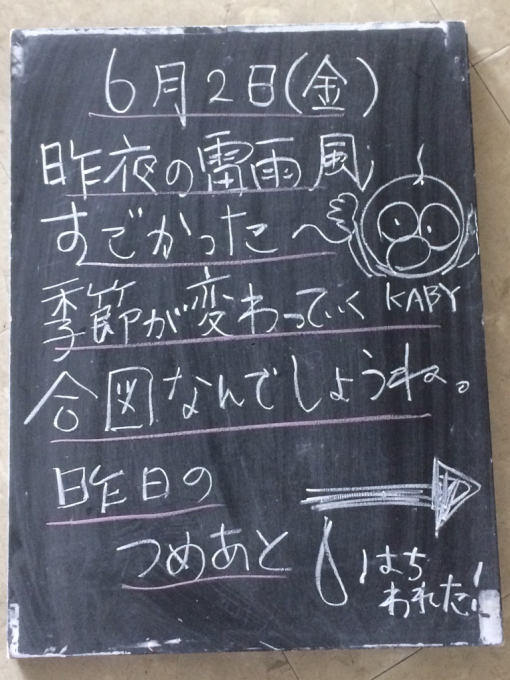 6月2日(金)
昨夜の雷雨風
すごかった〜
KABY
季節が変わっていく
合図なんでしょうね。
昨日の
つめあと
はち
われた!